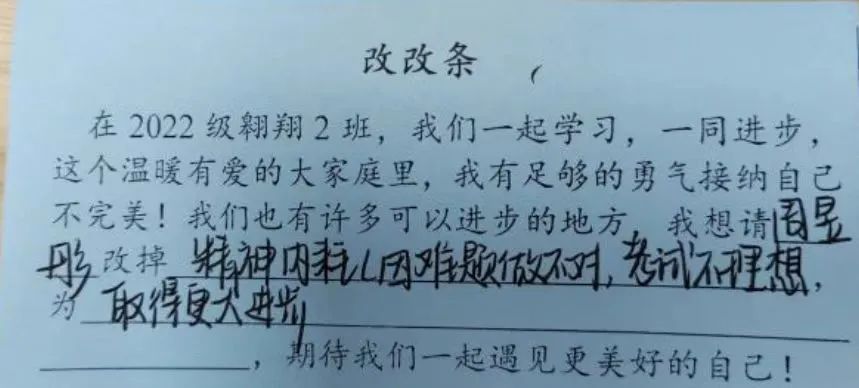 改改条
在 2022 级翱翔 2 班，我们一起学习，一同进步，
这个温暖有爱的大家庭里，我有足够的勇气接纳自己
不完美！我们也有许多可以进步的地方，我想请周昱
彤改掉 精神内耗(因难题做不对，考试不理想，
为 取得更大进步
，期待我们一起遇见更美好的自己！